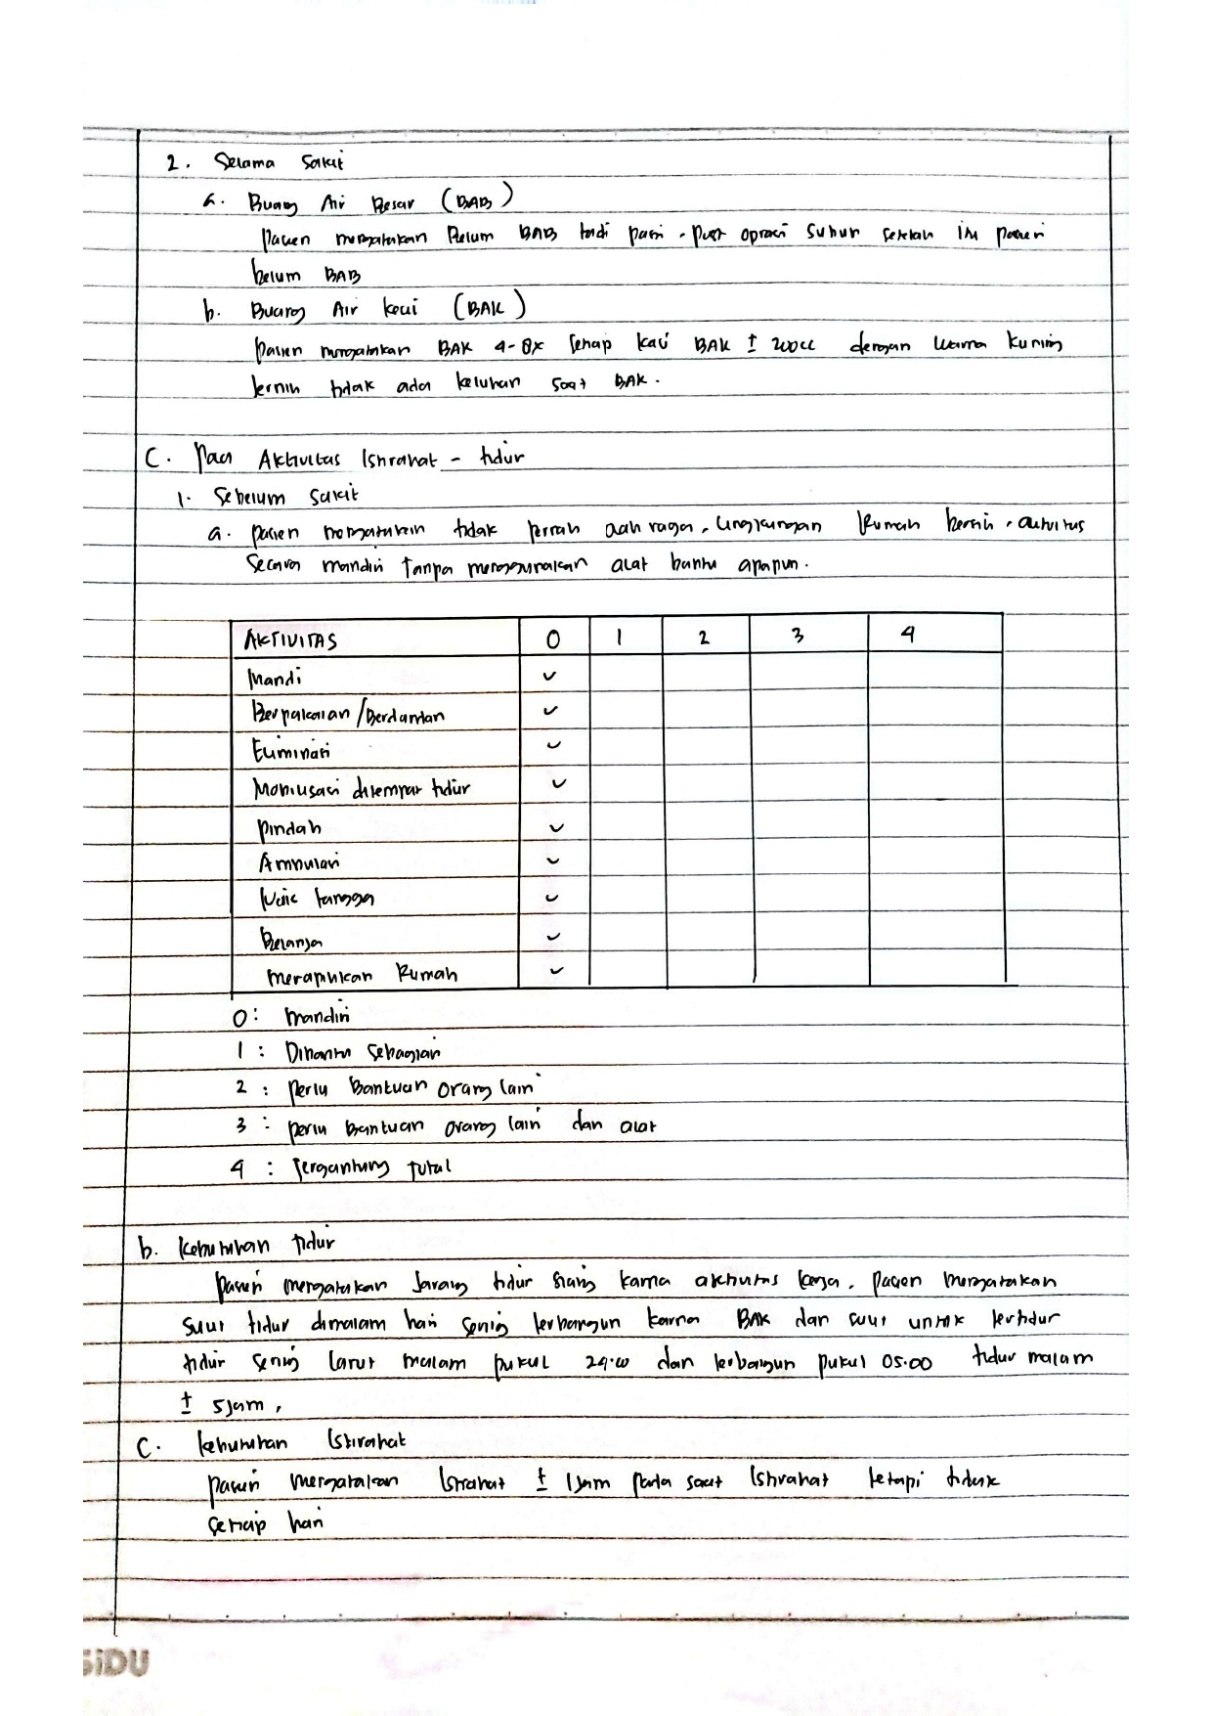 2. Selama Sakit
a. Buang Air Besar (BAB)
Pasien mengatakan Belum BAB tadi pagi. Post oprasi Subuh setelah itu pasien
belum BAB
b. Buang Air kecil (BAK)
Pasien mengatakan BAK 4-8x Setiap kali BAK ± 200cc dengan warna kuning
jernih tidak ada keluhan saat BAK.
C. Pola Aktivitas Istirahat - tidur
1. Sebelum Sakit
a. pasien mengatakan tidak pernah olah raga, lingkungan Rumah bersih, aktivitas
Secara mandiri tanpa menggunakan alat bantu apapun.
AKTIVITAS 0 1 2 3 4
Mandi ✓
Berpakaian/Berdandan ✓
Eliminasi ✓
Mobilisasi ditempat tidur ✓
Pindah ✓
Ambulasi ✓
Naik tangga ✓
Belanja ✓
merapihkan Rumah ✓
0: Mandiri
1 : Dibantu Sebagian
2 : perlu Bantuan orang lain
3 : perlu Bantuan orang lain dan alat
4 : Tergantung total
b. Kebutuhan tidur
Pasien mengatakan Jarang tidur siang karna aktivitas kerja. pasien mengatakan
Sulit tidur dimalam hari sering terbangun karna BAK dan sulit untuk tertidur
tidur sering larut malam pukul 24.00 dan terbangun pukul 05.00 tidur malam
± 5 jam,
C. kebutuhan Istirahat
Pasien mengatakan Istirahat ± 1 jam pada saat Istirahat tetapi tidak
Setiap hari
SiDU